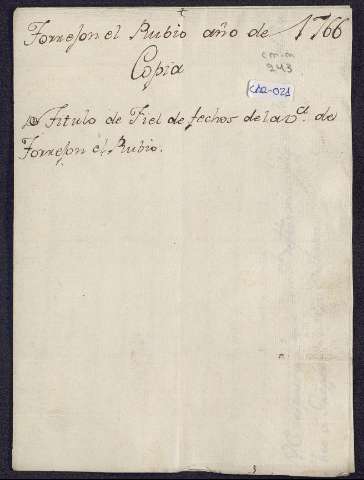 Torrejon el Rubio año de 1766
Copia
C M-M
243
CAR-021
Titulo de Fiel de fechos de la v.ª de
Torrejon el Rubio.